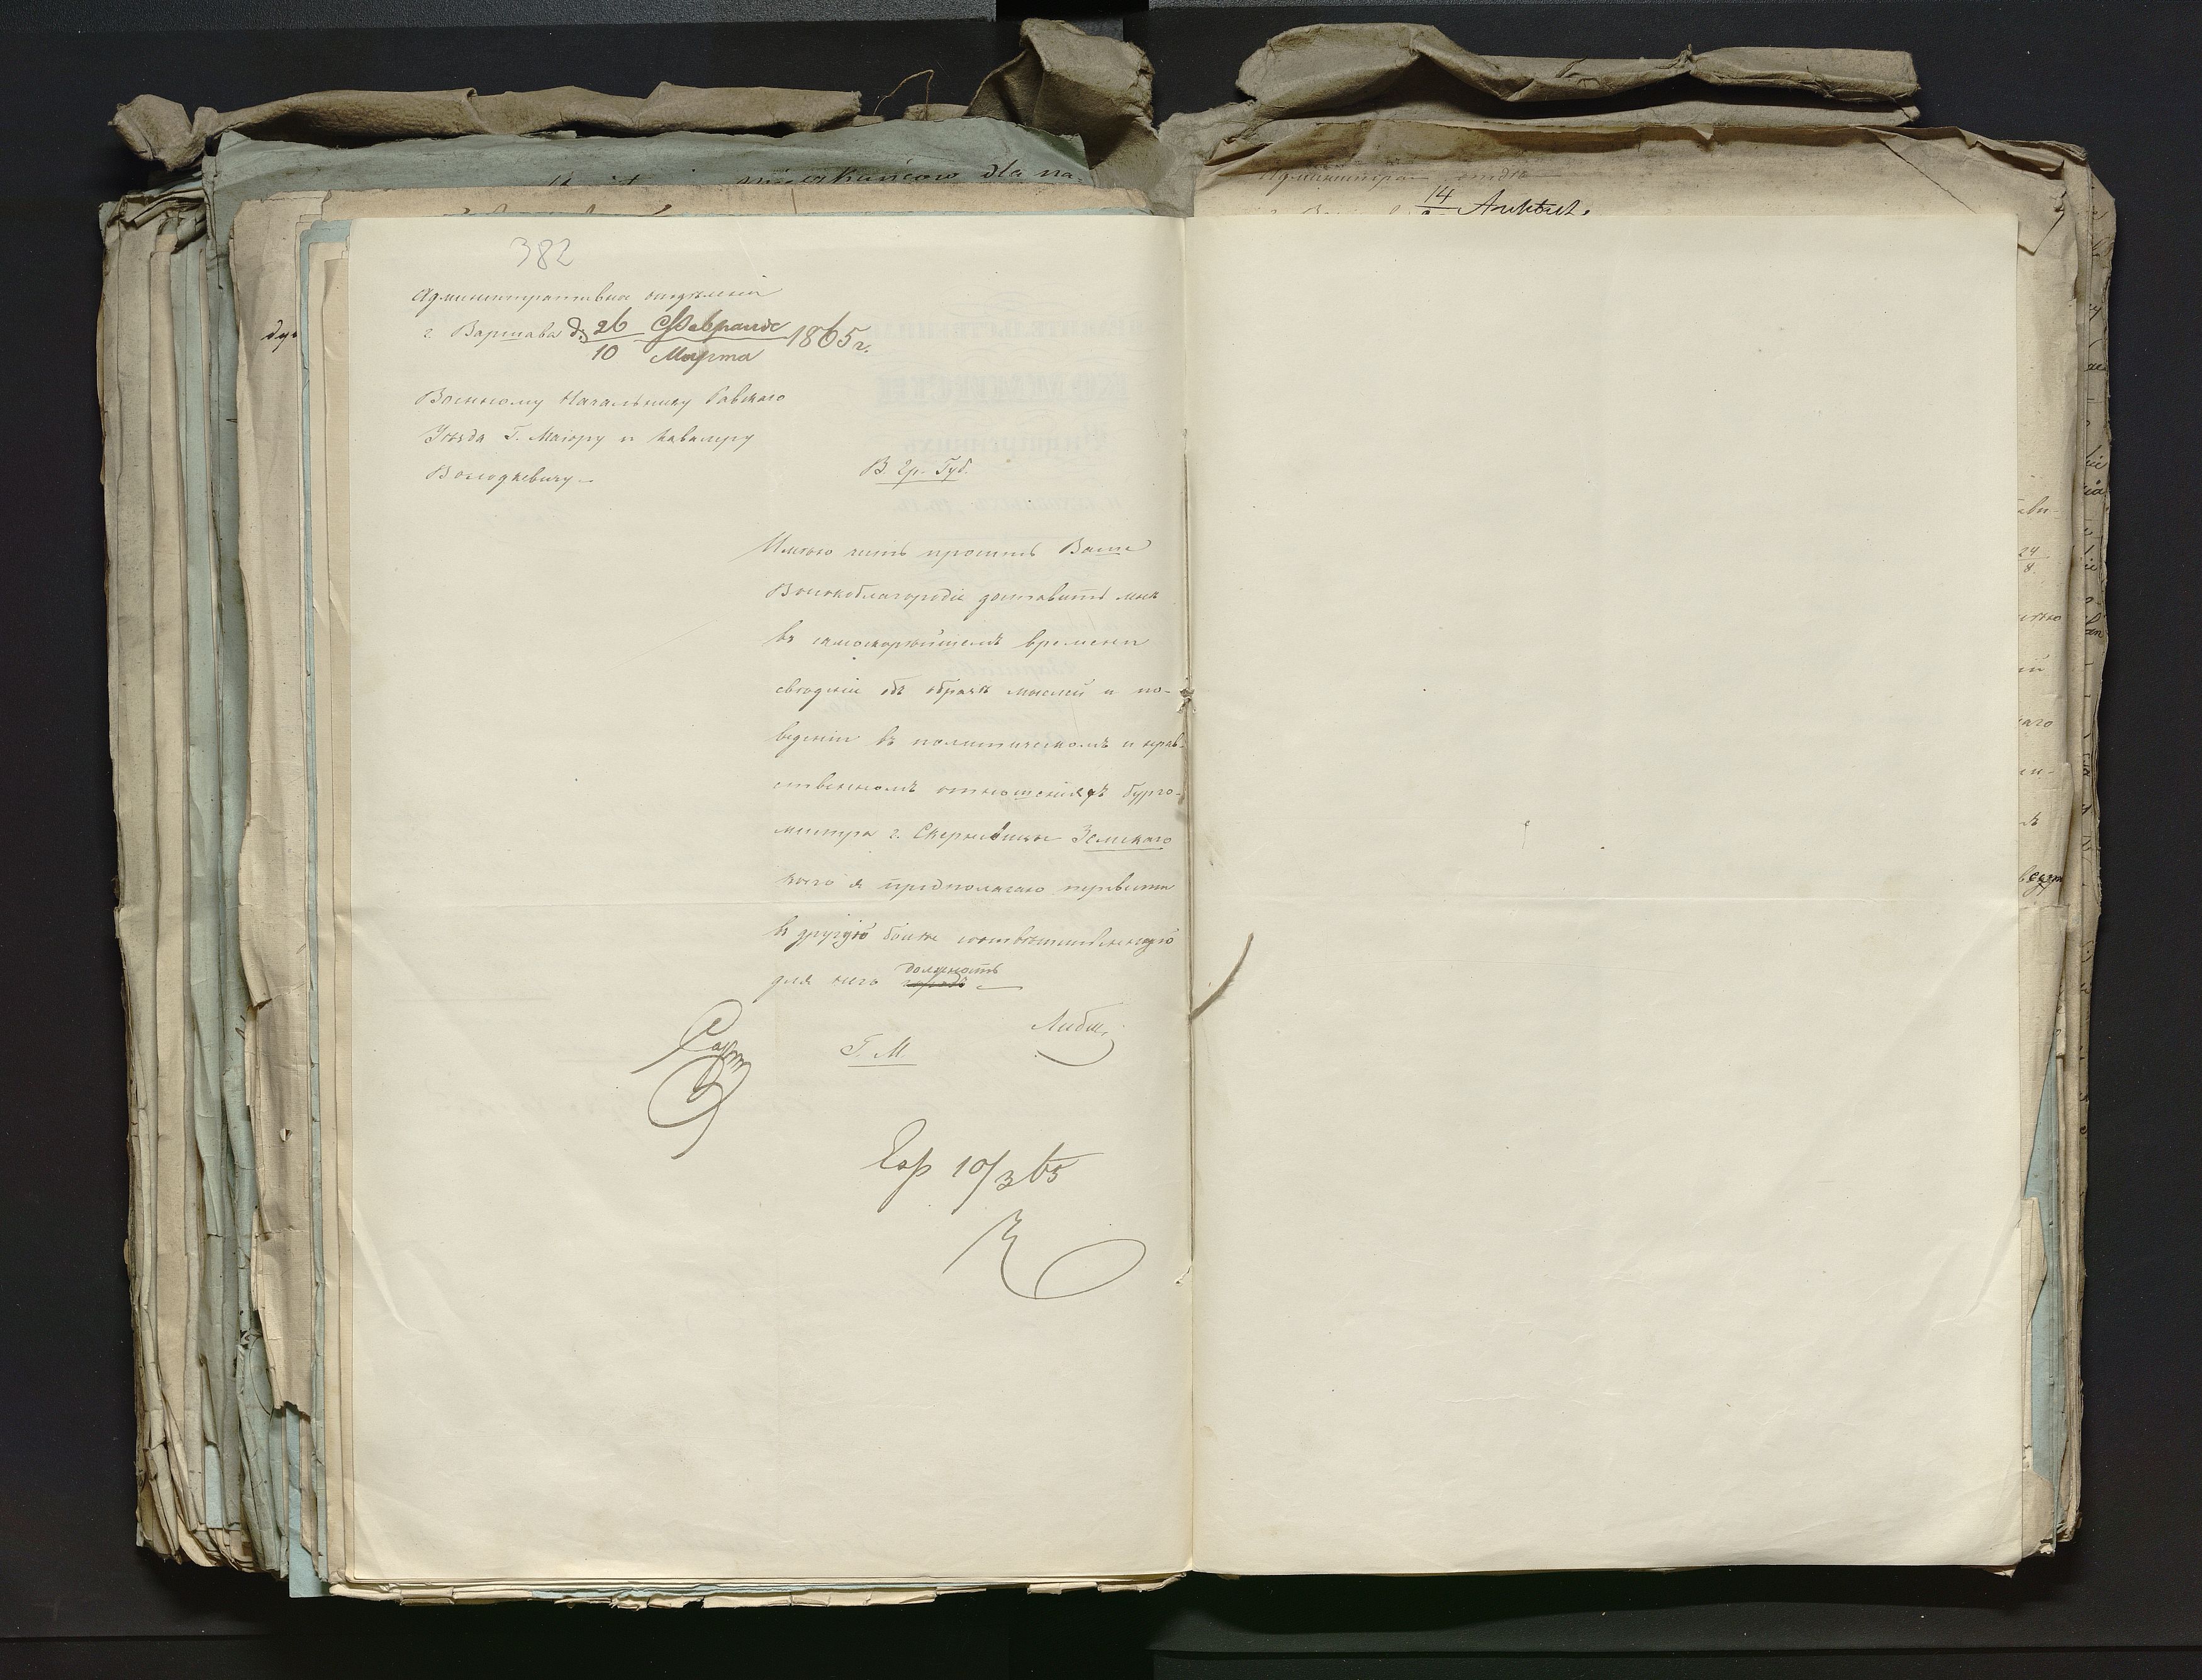 382
Административнa отдѣленiя
г. Варшава д. 26 Февраля / 10 Марта 1865 г.
Военному Начальнику Равскаго
Уѣзда Г. Маiору и Кавалеру
Володкевичу —
В. Гр. Губ.
Имѣю честь просить Ваше
Высокоблагородiе доставить мнѣ
въ самоскорѣйшемъ времени
свѣдѣнiи объ образѣ мыслей и по-
веденiи въ политическомъ и нрав-
ственномъ отношенiяхъ бурго-
мистра г. Скерневицы Земскаго
коего я предполагаю перевести
въ другую болѣе соотвѣтственную
для него городъ должность —
Г. М.
10/3 65
14 Апрѣля
dla na-